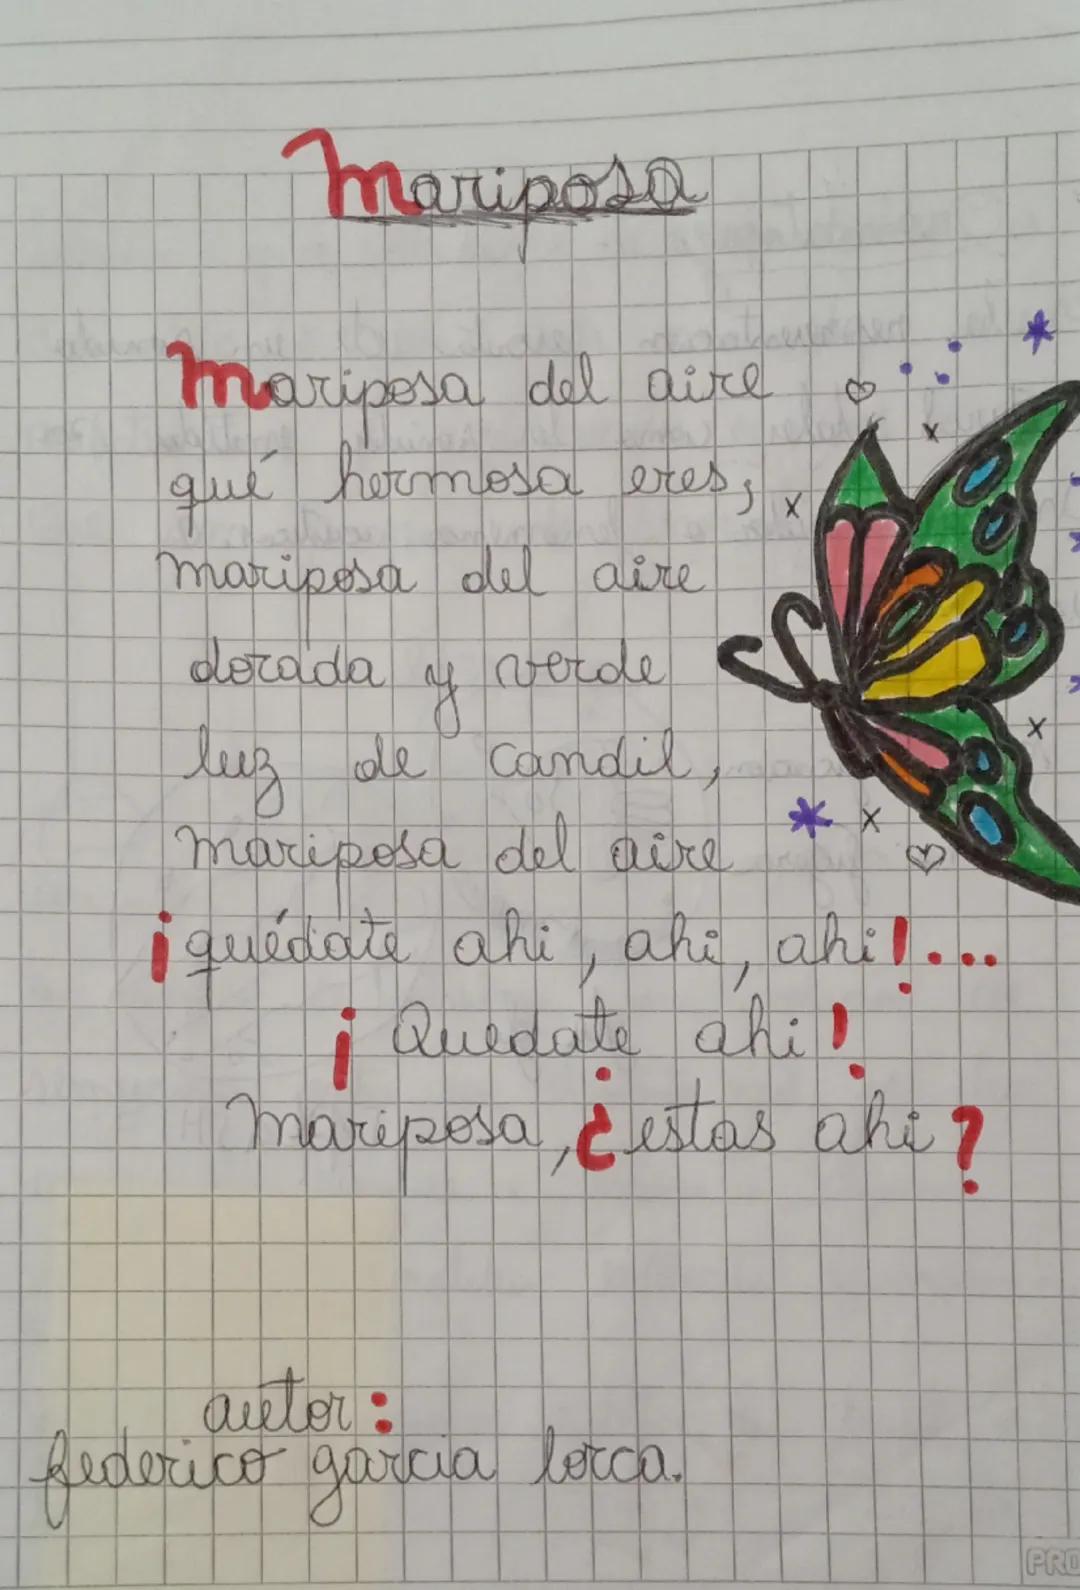 Mariposa
Mariposa del aire
qué hermosa eres,
mariposa del aire
dorada y verde
luz de candil,
mariposa del aire
¡quédate ahi, ahi, ahi!...
¡Quedate ahi!
Mariposa, ¿estas ahi?
autor:
federico garcia lorca.
PRO